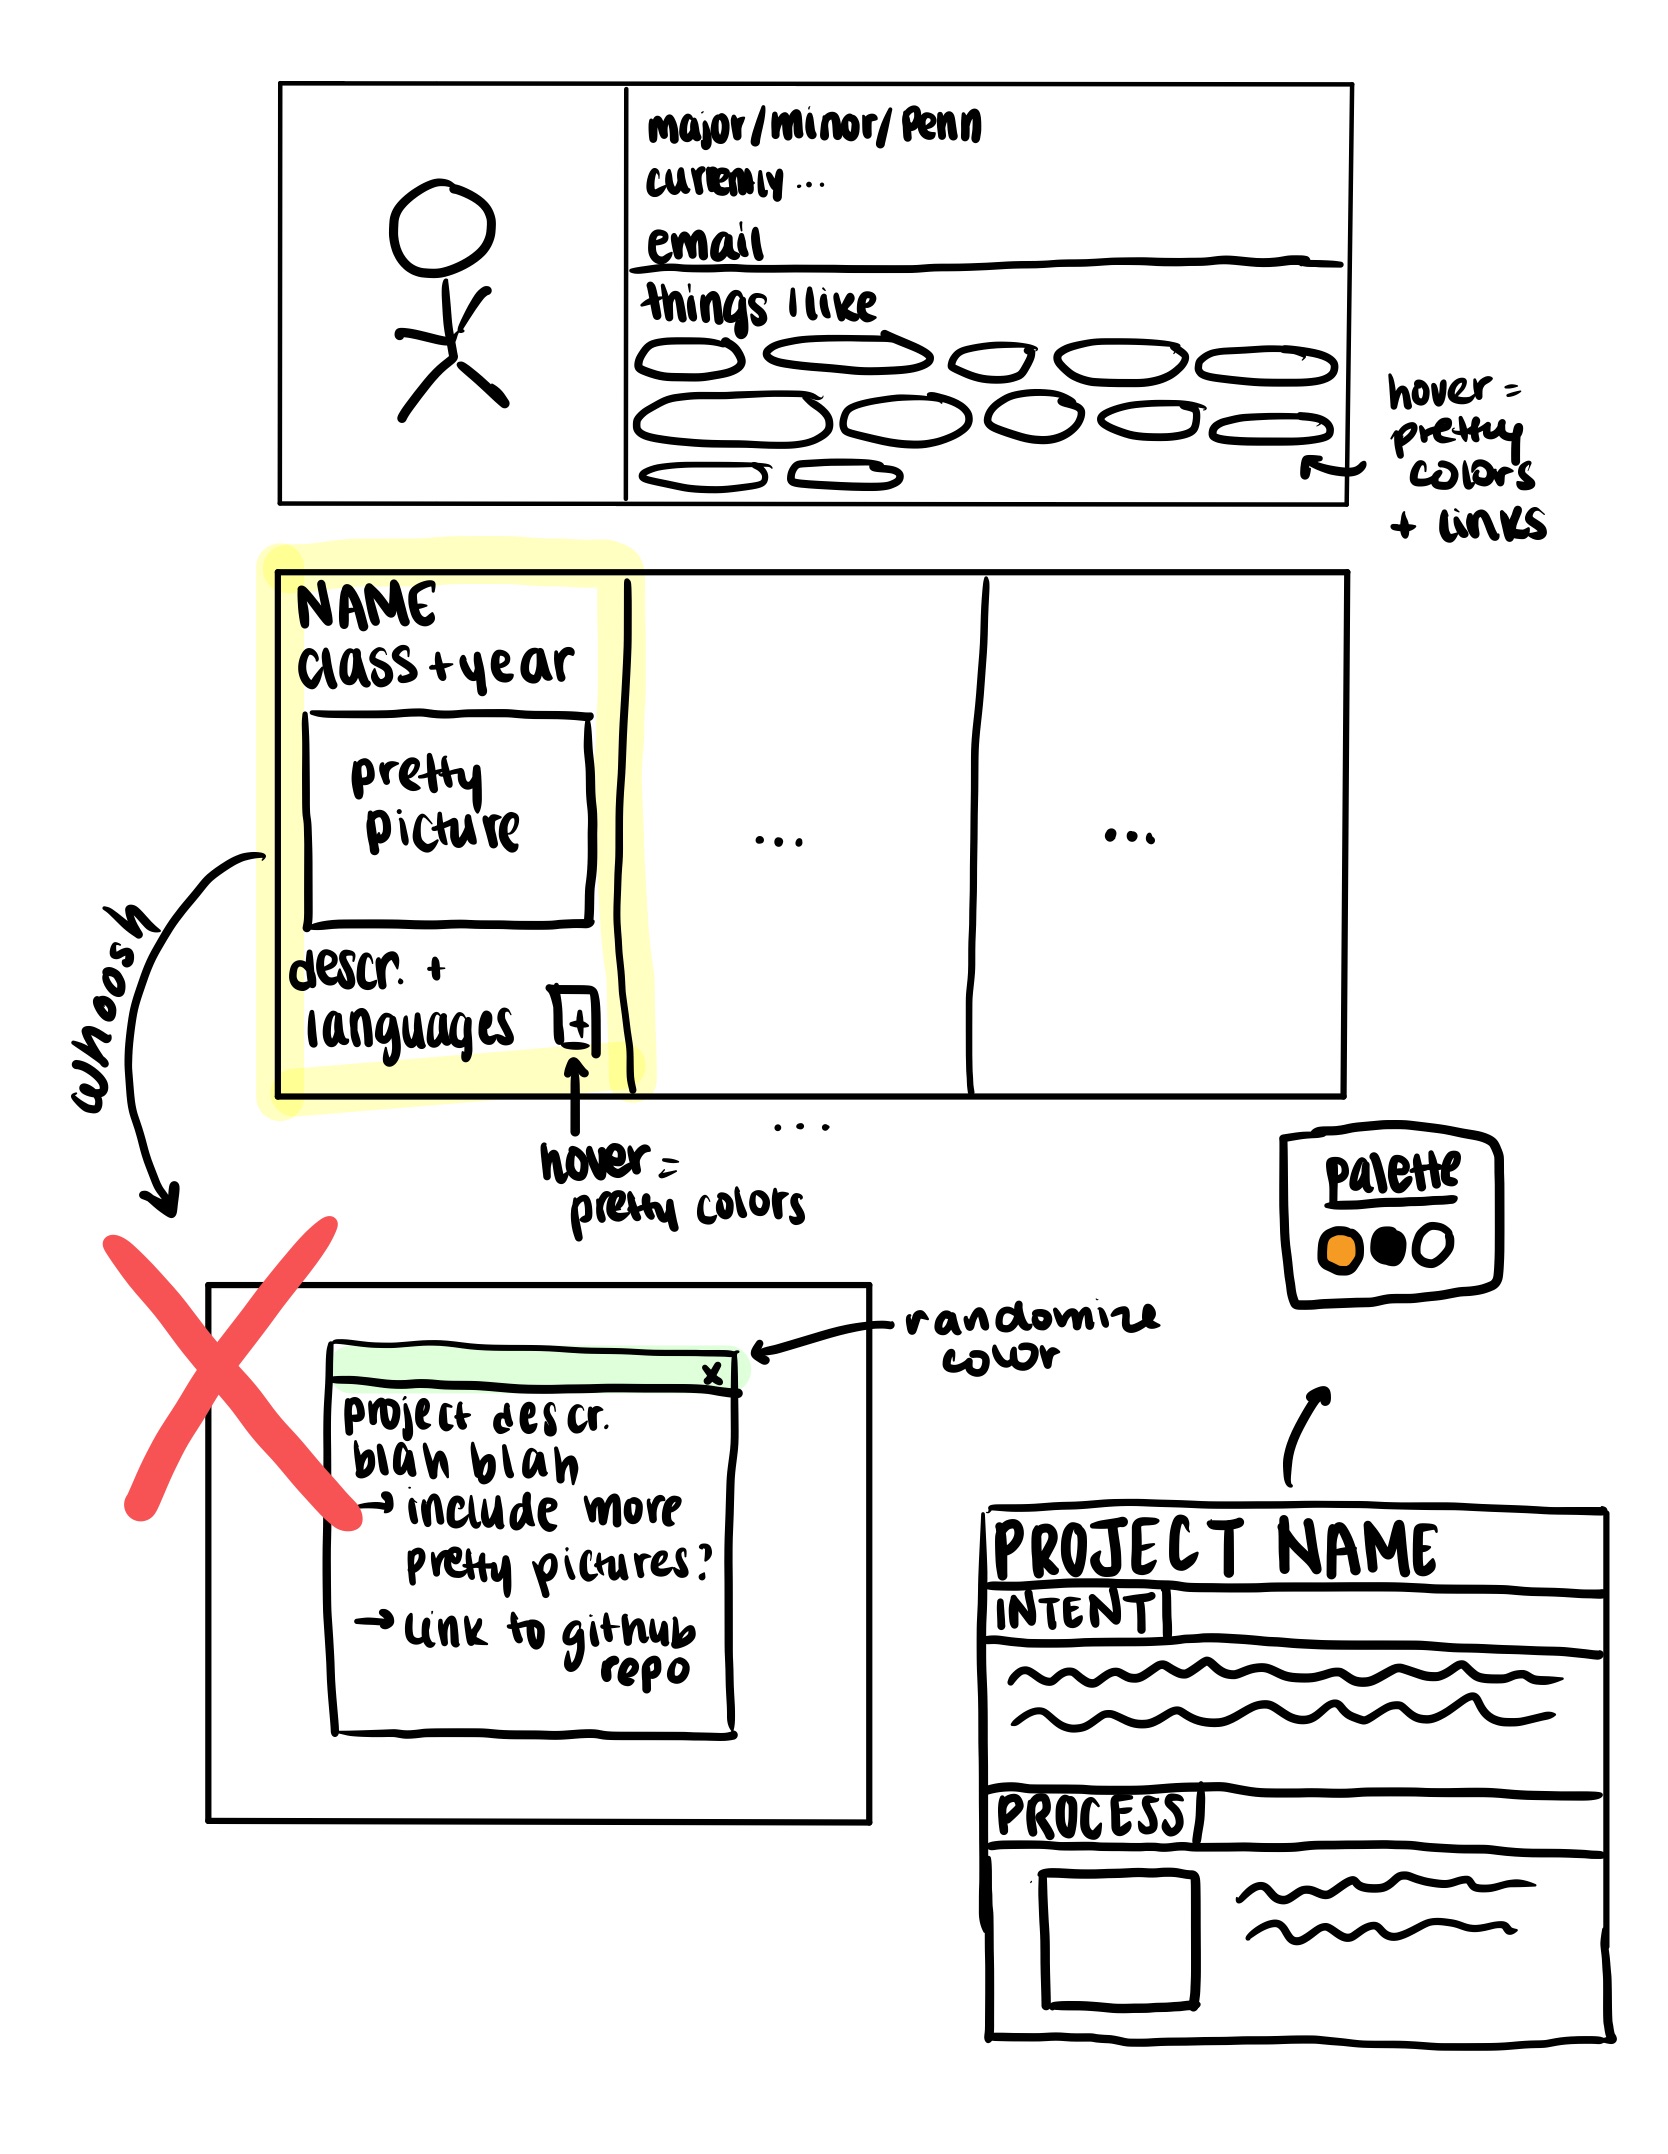 major/minor/Penn
currently ...
email
things I like
hover =
pretty
colors
+ links
NAME
class + year
pretty
picture
descr. +
languages
+
...
...
whoosh
...
hover =
pretty colors
palette
randomize
color
x
project descr.
blah blah
→ include more
pretty pictures?
→ link to github
repo
PROJECT NAME
INTENT
PROCESS